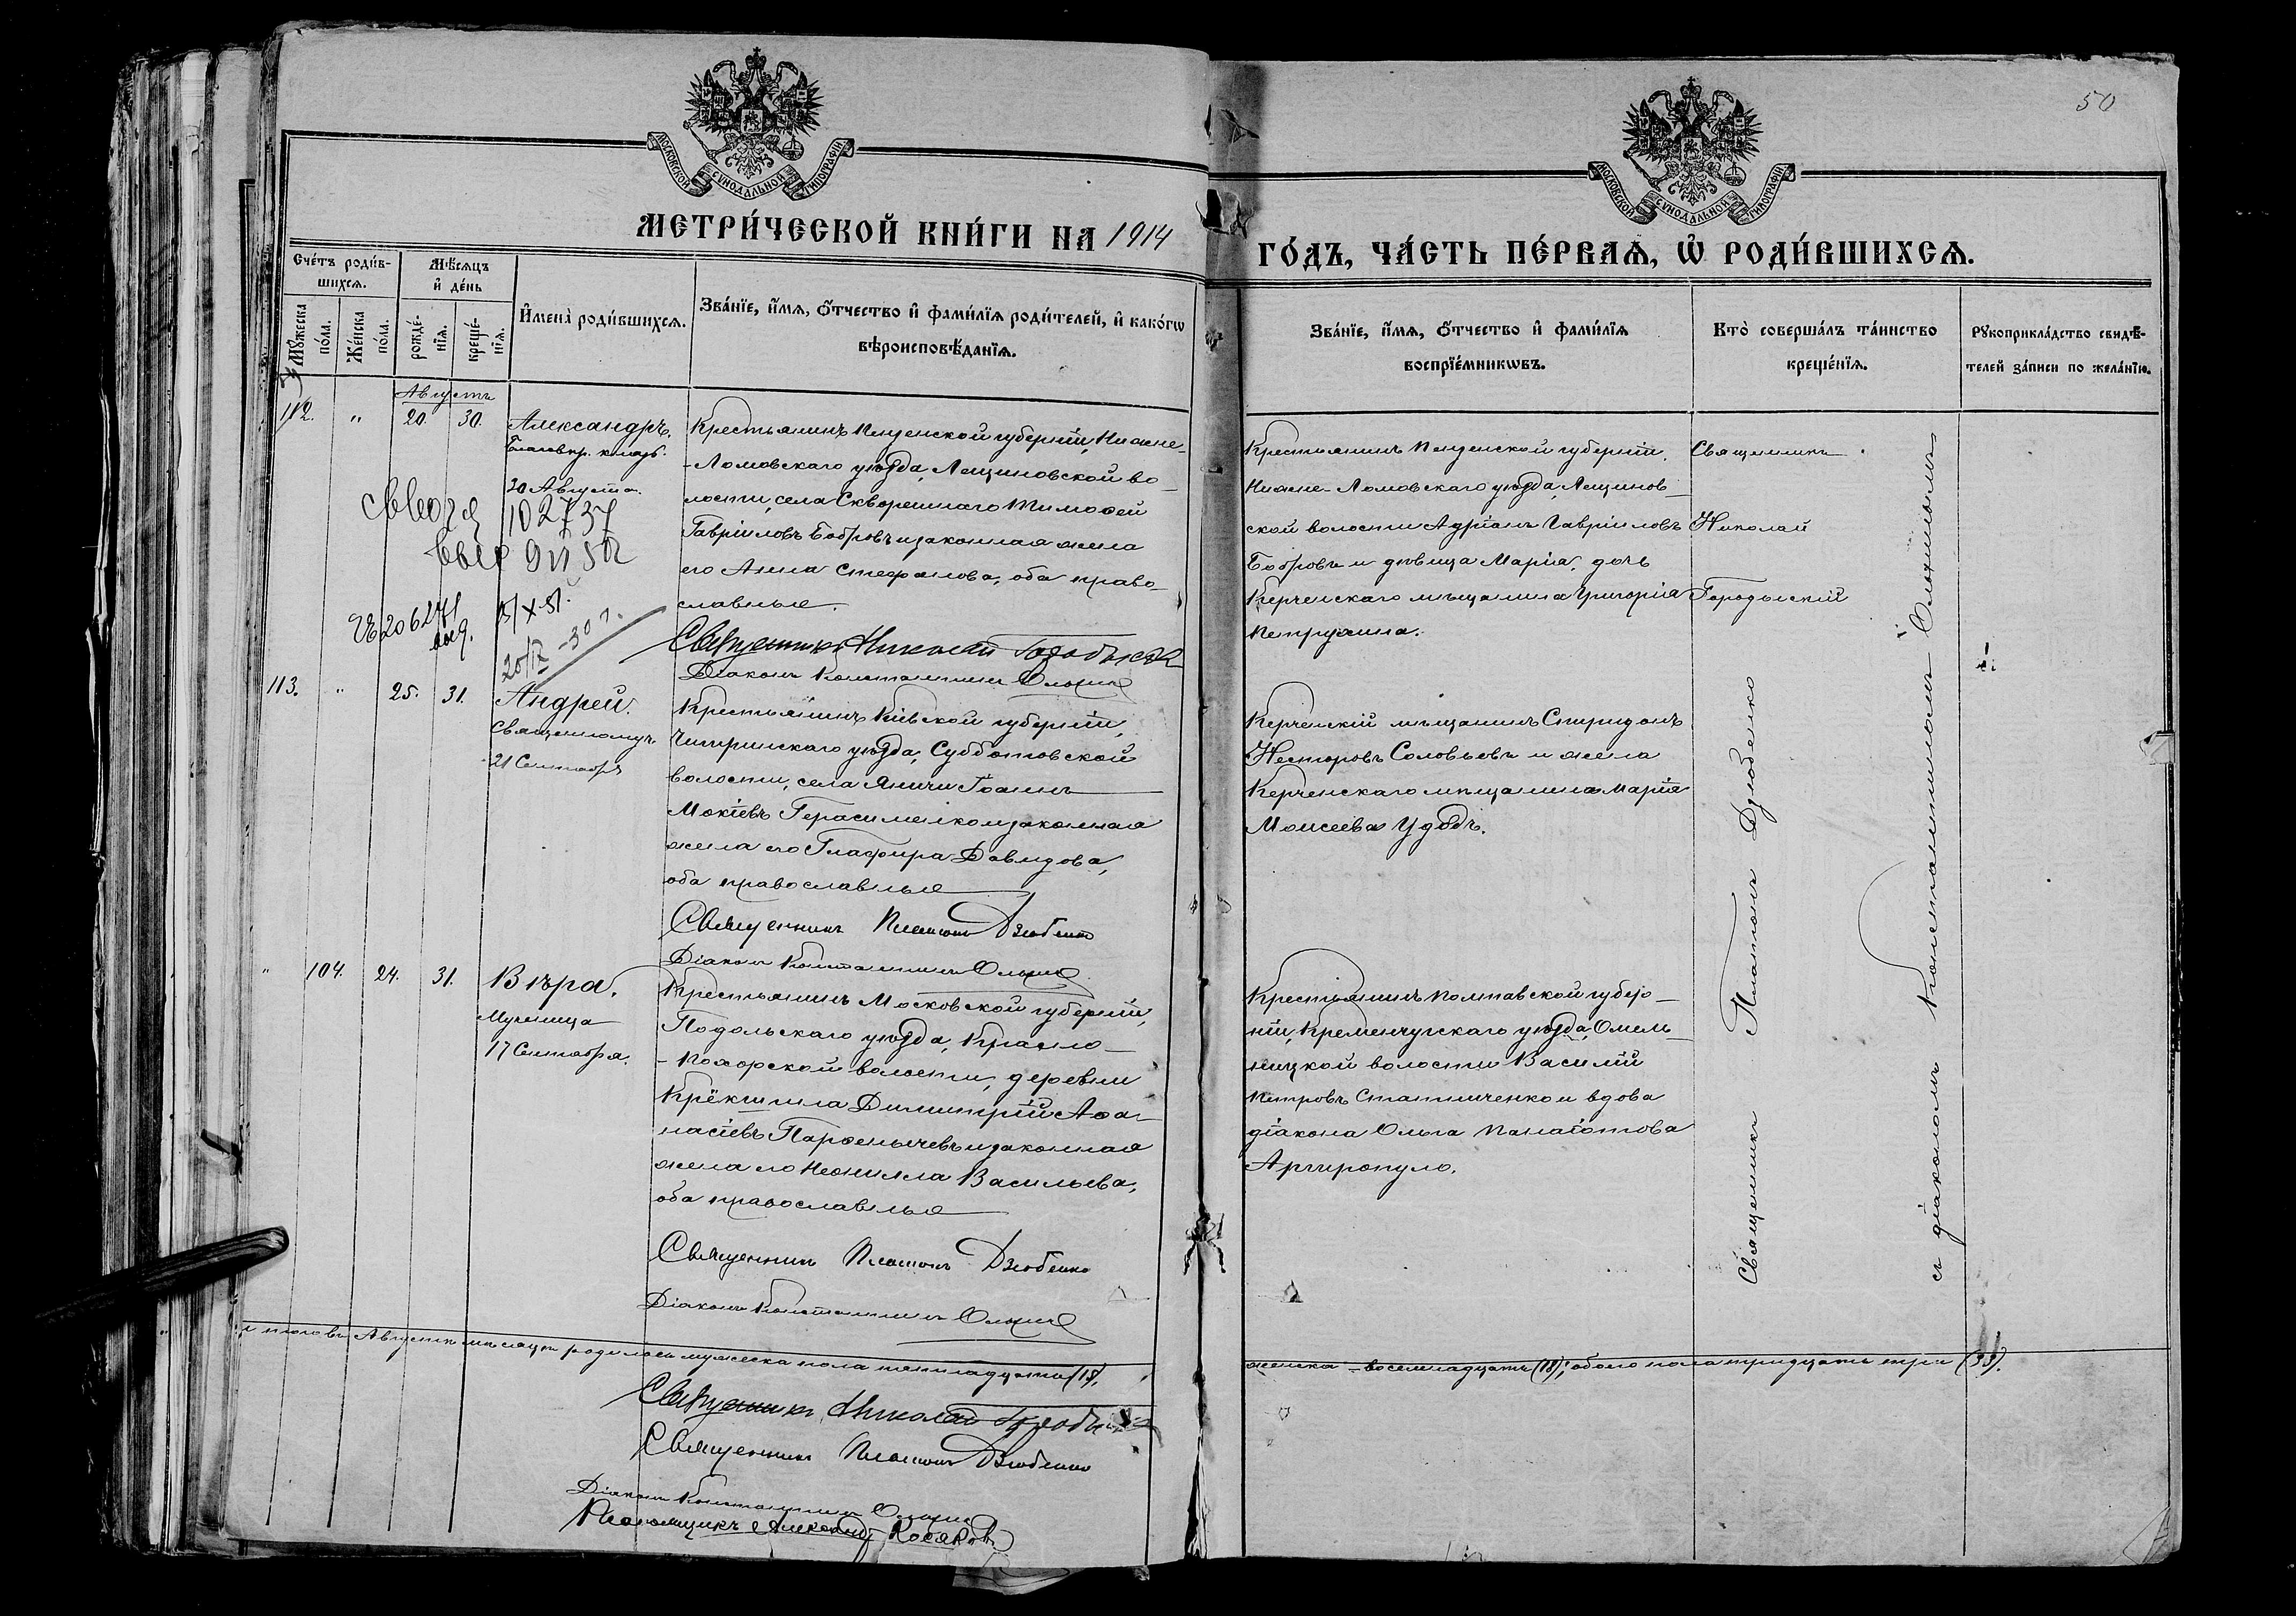 50
МОСКОВСКОЙ СѴНОДАЛЬНОЙ ТИПОГРАФІИ
МОСКОВСКОЙ СѴНОДАЛЬНОЙ ТИПОГРАФІИ
МЕТРИ́ЧЕСКОЙ КНИ́ГИ НА 1914
ГО́ДЪ, ЧА́СТЬ ПЕ́РВАѦ, Ѡ҆ РОДИ́ВШИХСѦ.
Сче́тъ роди́в-
шихсѧ.
Мꙋжеска
по́ла.
Же́нска
по́ла.
Мѣ́сѧцъ
и҆ де́нь
рожде́-
нїѧ.
креще́-
нїѧ.
И҆мена̀ роди́вшихсѧ.
Зва́нїе, и҆́мѧ, ѻ҆́тчество и҆ фами́лїѧ роди́телей, и҆ како́гѡ
вѣроисповѣ́данїѧ.
Зва́нїе, и҆́мѧ, ѻ҆́тчество и҆ фами́лїѧ
воспрїе́мникѡвъ.
Кто̀ соверша́лъ та́инство
креще́нїѧ.
Рꙋкоприкла́дство свидѣ́-
телей за́писи по жела́нїю.
Августъ
112. " 20. 30. Александръ.
Благовѣр. князь.
30 Августа.
102737
20/IX -30 г.
Крестьянинъ Пензенской губерніи, Нижне-
-Ломовскаго уѣзда, Лещиновской во-
лости, села Сквореинаго Тимоѳей
Гавріиловъ Бобровъ и законная жена
его Анна Стефанова, оба право-
славные.
Священникъ Николай Городыскій
Діаконъ Константинъ
Крестьянинъ Пензенской губерніи,
Нижне-Ломовскаго уѣзда, Лещинов-
ской волости Адріанъ Гавріиловъ
Бобровъ и дѣвица Марія, дочь
Керченскаго мѣщанина Григорія
Петрунина.
Священникъ
Николай
Городыскій
113. " 25. 31. Андрей.
Священномуч.
21 Сентябр
Крестьянинъ Кіевской губерніи,
Чигиринскаго уѣзда, Субботовской
волости, села Яничи Іоаннъ
Мокіевъ Герасименко и законная
жена его Глафира Давидова,
оба православные
Священникъ Платонъ Дзюбенко
Діаконъ Константинъ
Керченскій мѣщанинъ Спиридонъ
Несторовъ Соловьевъ и жена
Керченскаго мѣщанина Марія
Моисеева Удодъ.
" 104. 24. 31. Вѣра.
Мученица
17 Сентября.
Крестьянинъ Московской губерніи,
Подольскаго уѣзда, Красно-
-Пахорской волости, деревни
Крёкшина Димитрій Аѳа-
насіевъ Парѳенычевъ и законная
жена его Неонилла Васильева,
оба православные
Священникъ Платонъ Дзюбенко
Діаконъ Константинъ
Крестьянинъ Полтавской губер-
ніи, Кременчугскаго уѣзда, Омель-
ницкой волости Василій
Петровъ Статниченко и вдова
діакона Ольга Панаіотова
Аргиропуло.
Священникъ Платонъ Дзюбенко
съ діакономъ Константиномъ
Августѣ мѣсяцѣ родилось мужеска пола пятнадцать (15),
женска - восемнадцать (18), обоего пола тридцать три (33).
Священникъ Николай
Священникъ Платонъ Дзюбенко
Діаконъ Константинъ
Псаломщикъ Александръ Косяковъ